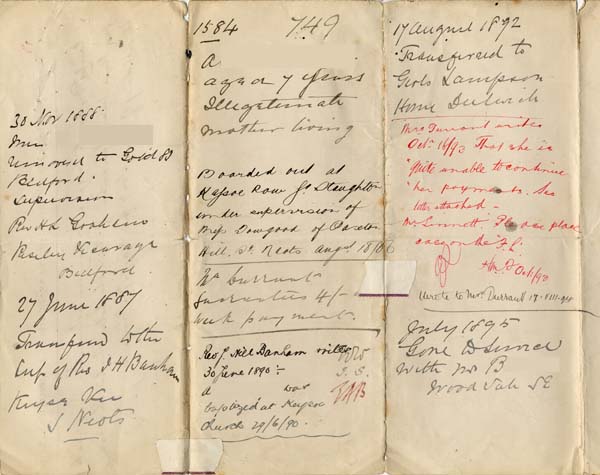 30 Nov 1888
Mrs
removed to Gold
Bedford.
Supervision
Rev H.L. Graham
Vicarage
Bedford.
27 June 1889
Transferred to the
Sup of Rev J H Banham
Keysoe Vic
S Neots
1584 749
A
aged 7 years
Illegitimate
mother living
Boarded out at
Keysoe Row Gt Staughton
under supervision of
Mrs Dowgood of
Hill, St. Neots Augst 18/86
Mr Durrant
Guarantees 4/-
week payment.
Rev J. Neil Banham writes
30 June 1890:-
A was
baptized at Keysoe
Church 29/6/90.
17 August 1892
Transferred to
Girls Lampson
Home Dulwich
Mrs Durrant writes
Oct. 16/93 That she is
"quite unable to continue
"her payments. See
letter attached -
Mr Sinnett Please place
case on the F.L.
Oct 1/93
Wrote to Mrs Durrant 17.VIII.94
July 1895
Gone to Service
with Mrs B
Wood Vale SE